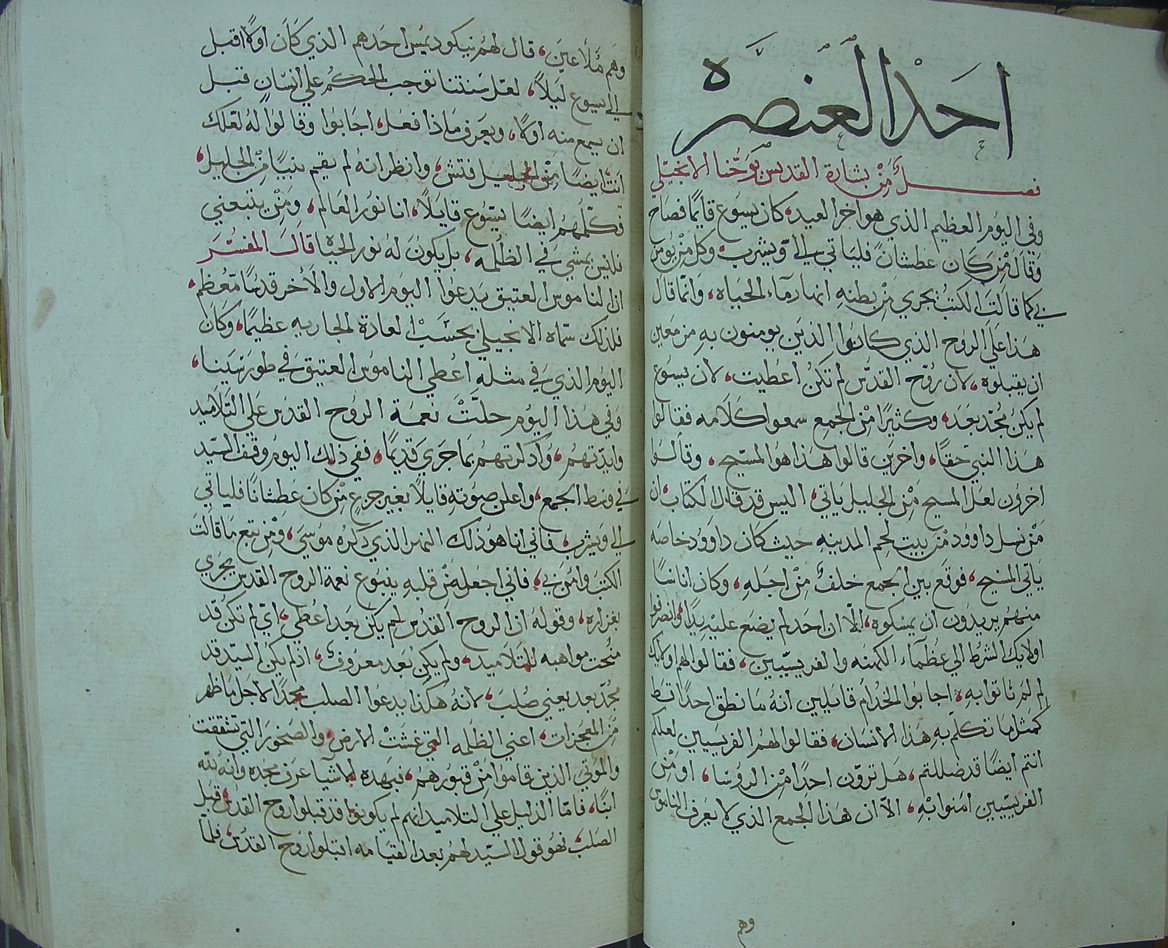 احد العنصره
فصل من بشارة القديس يوحنا الانجيلي
وفي اليوم العظيم الذي هو اخر العيد، كان يسوع قايما فصاح
وقال من كان عطشان فلياتي الي ويشرب، وكل من يومن
بي كما قالت الكتب يجري من بطنه انهار ماء الحياه، وانما قال
هذا على الروح الذي كانوا الذين يومنون به مزمعين
ان يقبلوه، لان روح القدس لم تكن اعطيت، لان يسوع
لم يكن مجد بعد، وكثيرا من الجمع سمعوا كلامه فقالوا
هذا النبي حقا، واخرين قالوا هذا هو المسيح، وقالوا
اخرون لعل المسيح من الجليل ياتي، اليس قد قال الكتاب ان
من نسل داوود من بيت لحم المدينه حيث كان داوود خاصه
ياتي المسيح، فوقع بين الجمع خلف من اجله، وكان اناسا
منهم يريدون ان يمسكوه، الا ان احد لم يضع عليه يدا، وانصرفوا
اولايك الشرط الي عظماء الكهنه والفريسيين، فقالوا لهم اولايك
لم لم تاتوا به، اجابوا الخدام قايلين انه ما نطق احدا قط
كمثل ما تكلم به هذا الانسان، فقالوا لهم الفريسيين لعلكم
انتم ايضا قد ضللتم، هل ترون احدا من الروسا، او من
الفريسيين امنوا به، الا ان هذا الجمع الذي لا يعرف الناموس
وهم
وهم ملاعين، قال لهم نيكوديمس احدهم الذي كان اولا اقبل
الي يسوع ليلا، لعل سنتنا توجب الحكم علي انسان قبل
ان يسمع منه اولا، ويعرف ماذا فعل، اجابوا وقالوا له لعلك
انت ايضا من الجليل فتش، وانظر انه لم يقيم نبيا من الجليل،
فكلمهم ايضا يسوع قايلا، انا نور العالم، ومن يتبعني
فليس يمشي في الظلمه، بل يكون له نور الحياة قال المفسر
ان الناموس العتيق يدعوا اليوم الاول والاخر قدسا معظم،
فلذلك سماه الانجيلي بحسب العادة الجاريه عظيما، وكان
اليوم الذي في مثله اعطي الناموس العتيق في طور سينا،
وفي هذا اليوم حلت نعمة الروح القدس علي التلاميد
وايدتهم، واذكرتهم بما جري قديما، ففي ذلك اليوم وقف السيد
في وسط الجمع، واعلن صوته قايلا بغير جزع من كان عطشانا فلياتي
الي ويشرب، فاني انا هو ذلك النهر الذي ذكره موسى، ومن تبع ما قالت
الكتب وامن بي، فاني اجعله من قلبه ينبوع نعمة الروح القدس يجري
بغزاره، وقوله ان الروح القدس لم يكن بعد اعطي، اي لم تكن قد
منحت مواهبه للتلاميد، ولم يكن بعد معروف، اذ لم يكن السيد قد
مجد بعد يعني صلب، لانه هكذا يدعوا الصلب مجدا لاجل ما ظهر
من المعجزات، اعني الظلمه التي غشت الارض، والصخور التي تشققت
والموتي الدين قاموا من قبورهم، فبهده الاشيا عرف مجده وانه لله
ابنا، فاما الدليل علي التلاميد انهم لم يكونوا قد قبلوا روح القدس قبل
الصلب، فهو قول السيد لهم بعد القيامه اقبلوا روح القدس، فلما